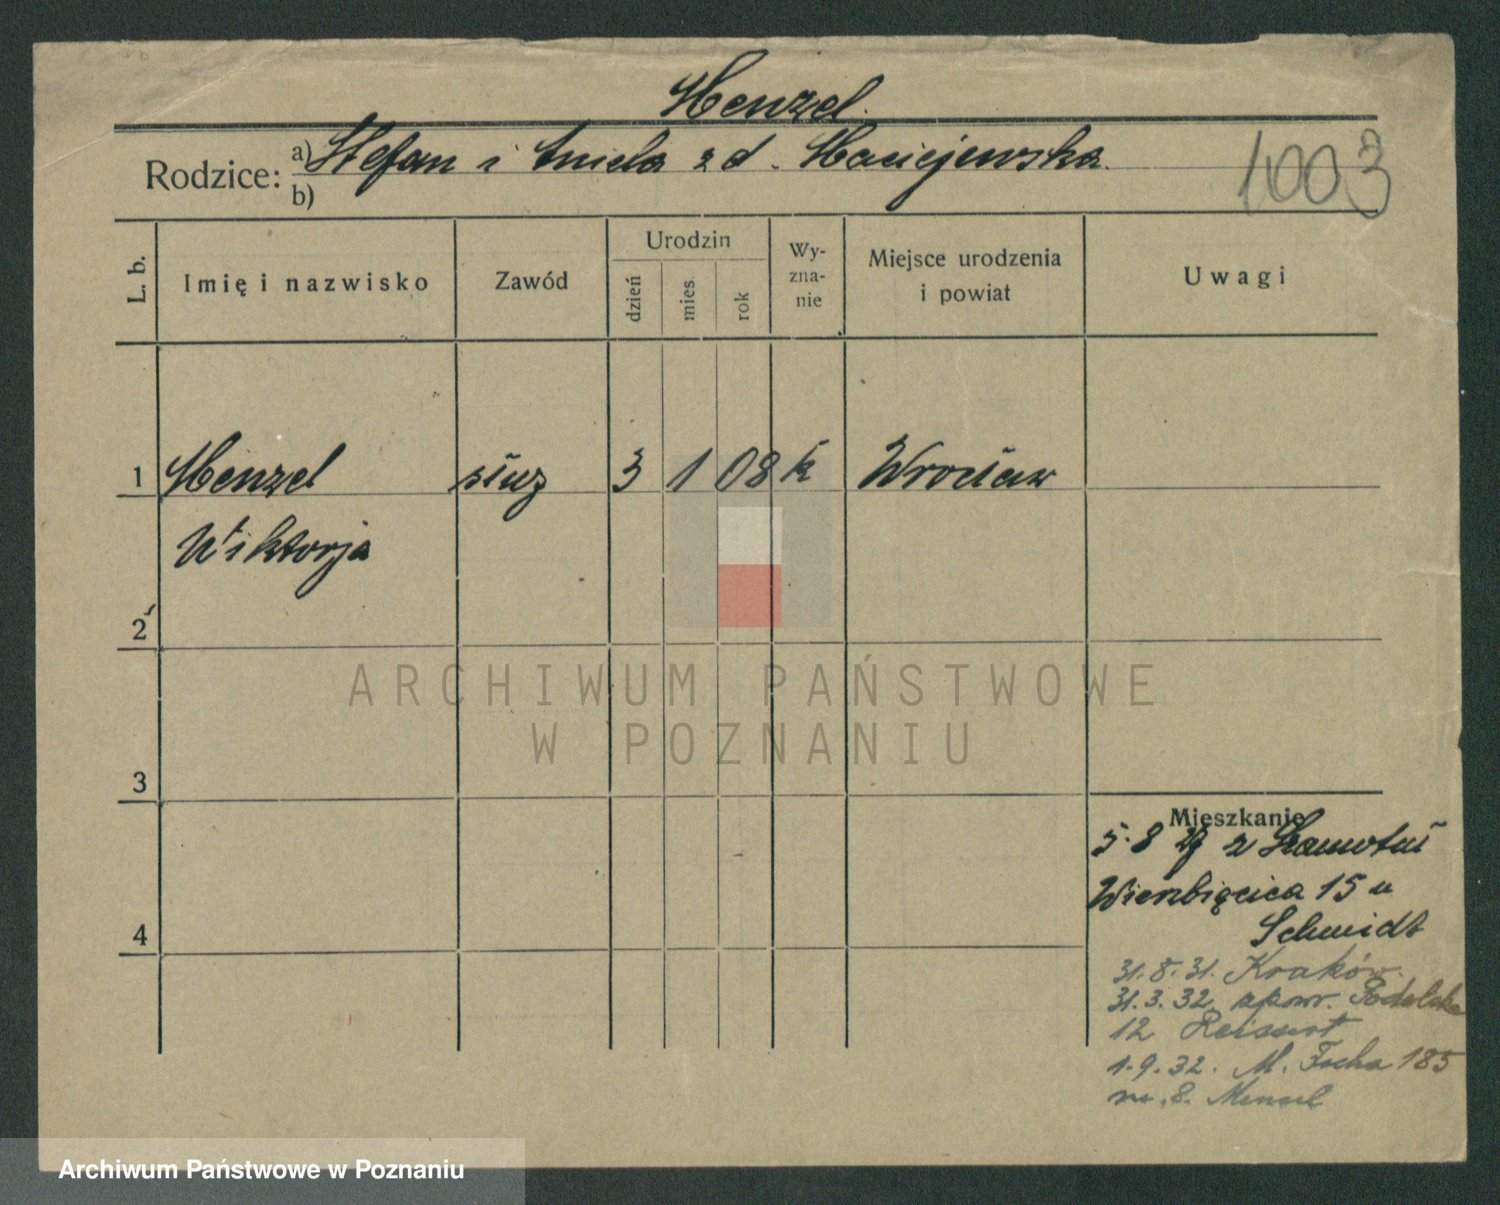 Menzel
Rodzice: a) Stefan i Aniela z d. Maciejewska
b)
1003
L. b.
Imię i nazwisko
Zawód
Urodzin
dzień
mies
rok
Wy-
zna-
nie
Miejsce urodzenia
i powiat
Uwagi
1 Menzel służ 3 1 08 k Wrocław
Wiktorja
2
3
4
Mieszkanie
5.8 29 z Szamotuł
Wierzbięcice 15 u
Schmidt
31.8.31. Kraków.
31.3.32. spowr.
12
1.9.32. M. Focha 185
m. 8. Menzel
ARCHIWUM PAŃSTWOWE
W POZNANIU
Archiwum Państwowe w Poznaniu